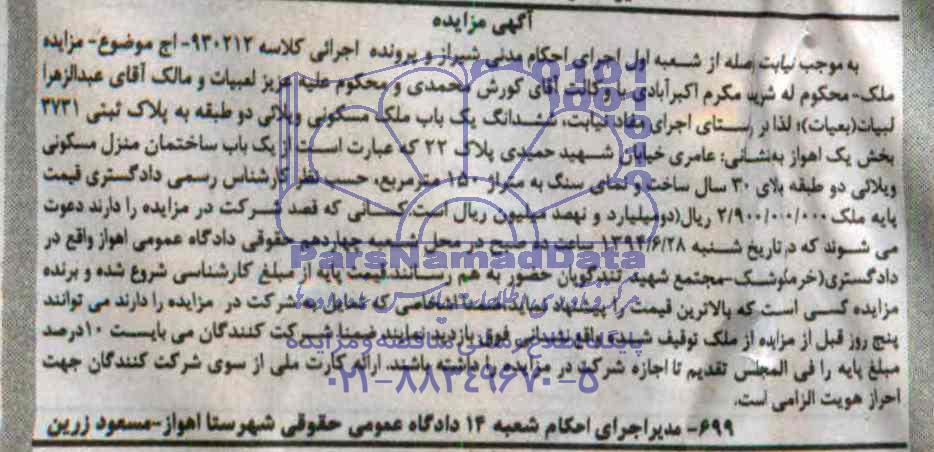 آگهی مزایده
به موجب نیابت واصله از شعبه اول اجرای احکام مدنی شیراز و پرونده اجرائی کلاسه ۹۳۰۲۱۲- اج موضوع- مزایده
ملک- محکوم له شرید مکرم اکبرآبادی با وکالت آقای کورش محمدی و محکوم علیه عزیز لعبیات و مالک آقای عبدالزهرا
لبیات(بعیات)؛ لذا در راستای اجرای مفاد نیابت، ششدانگ یک باب ملک مسکونی ویلائی دو طبقه به پلاک ثبتی ۳۷۳۱
بخش یک اهواز به‌نشانی: عامری خیابان شهید حمیدی پلاک ۲۲ که عبارت است از یک باب ساختمان منزل مسکونی
ویلائی دو طبقه بلای ۳۰ سال ساخت و نمای سنگ به متراژ ۱۵۰ مترمربع، حسب نظر کارشناس رسمی دادگستری قیمت
پایه ملک ۲/۹۰۰/۰۰/۰۰۰ ریال(دومیلیارد و نهصد میلیون ریال است.کسانی که قصد شرکت در مزایده را دارند دعوت
می شوند که در تاریخ شنبه ۱۳۹۴/۶/۲۸ ساعت ده صبح در محل شعبه چهاردهم حقوقی دادگاه عمومی اهواز واقع در
دادگستری(خرملوشک-مجتمع شهید تندگویان حضور به هم رسانند قیمت پایه از مبلغ کارشناسی شروع شده و برنده
مزایده کسی است که بالاترین قیمت را پیشنهاد نماید.ضمنا اشخاصی که تمایل به شرکت در مزایده را دارند می توانند
پنج روز قبل از مزایده از ملک توقیف شده واقع نشدانی فوق بازدید نمایند ضمنا شرکت کنندگان می بایست ۱۰درصد
مبلغ پایه را فی المجلس تقدیم تا اجازه شرکت در مزایده را داشته باشند. ارائه کارت ملی از سوی شرکت کنندگان جهت
احراز هویت الزامی است.
۶۹۹- مدیر اجرای احکام شعبه ۱۴ دادگاه عمومی حقوقی شهرستا اهواز-مسعود زرین
ParsNamadData
پایگاه اطلاع رسانی مناقصه و مزایده
۰۲۱-۸۸۳۴۹۶۷۰-۵